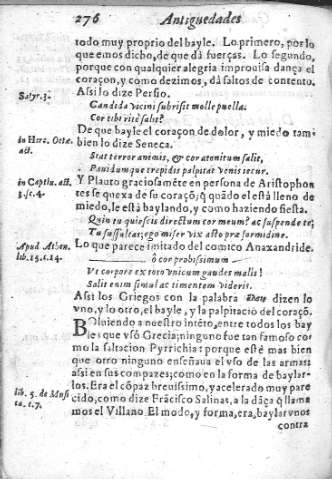 276 Antiguedades
todo muy proprio del bayle. Lo primero, por lo
que emos dicho, de que dà fuerças. Lo segundo,
porque con qualquier alegria improuisa dança el
coraçon, y como dezimos, dà saltos de contento.
Satyr. 3. Assi lo dize Persio.
Candida vicini subrisit molle puella.
Cor tibi ritè salit?
De que bayle el coraçon de dolor, y miedo tam
in Herc. Octæ. bien lo dize Seneca.
act.
Stat terror animis, & cor atonitum salit,
Pauidumque trepidis palpitat venis iecur.
in Captiu. act. Y Plauto graciosamẽte en persona de Aristophon
3. sc. 4. tes se quexa de su coraçõ; q̃ quãdo el està lleno de
miedo, le està baylando, y como haziendo fiesta.
Quin tu quiescis directum cor meum? ac suspende te;
Tu sussultas; ego miser vix asto præ formidine.
Apud Athen. Lo que parece imitado del comico Anaxandride.
lib. 15. c. 14. ò cor probissimum
Vt corpore ex toto vnicum gaudes malis!
Salit enim simul ac timentem videris.
Assi los Griegos con la palabra dizen lo
vno, y lo otro, el bayle, y la palpitaciõ del coraçõ.
Boluiendo a nuestro intẽto, entre todos los bay
les que vsó Grecia; ninguno fue tan famoso co
mo la saltacion Pyrrichia: porque este mas bien
que otro ninguno enseñaua el vso de las armas
assi en sus compazes; como en la forma de baylar-
los. Era el cõpaz breuissimo, y acelerado muy pare
lib. 5. de Musi cido, como dize Frãcisco Salinas, a la dãça q̃ llama
ca. c. 7. mos el Villano. El modo, y forma, era, baylar vnos
contra